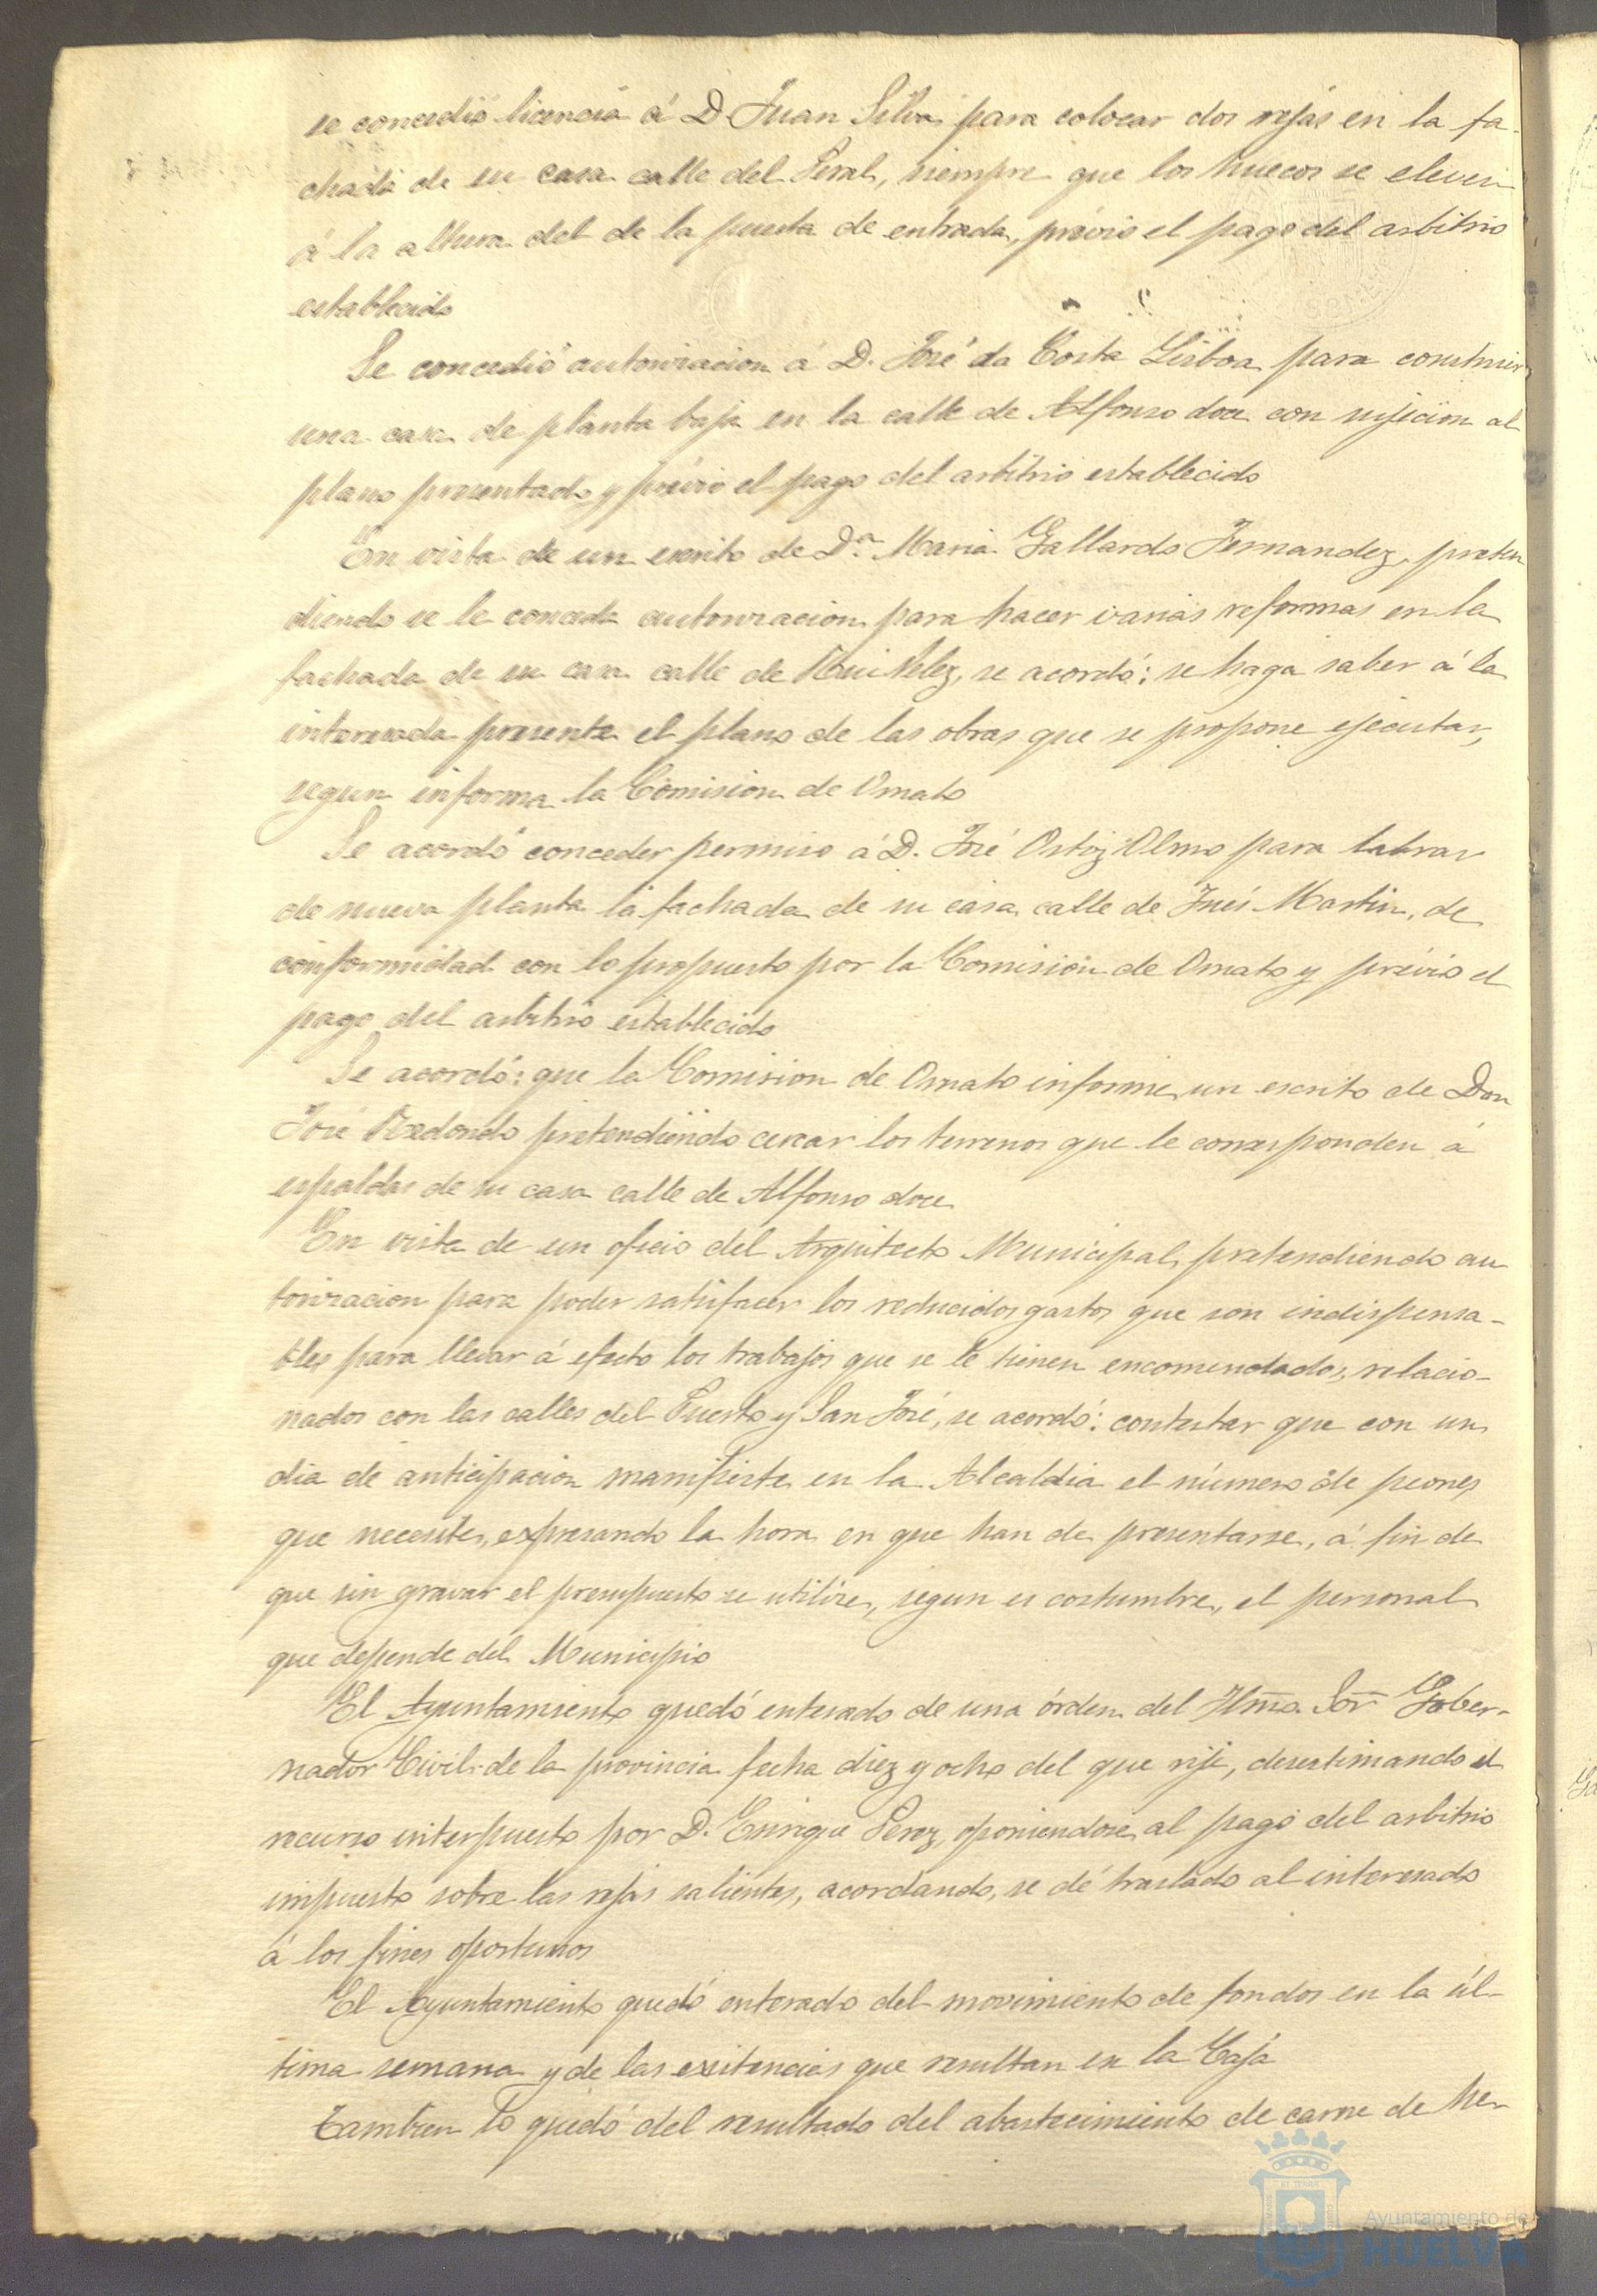 se concedió licencia á D. Juan Silva para colocar dos rejas en la fa-
chada de su casa calle del Peral, siempre que los huecos se eleven
á la altura del de la puerta de entrada, prévio el pago del arbitrio
establecido
Se concedió autorizacion á D. José da Costa Lisboa para construir
una casa de planta baja en la calle de Alfonso doce con sujecion al
plano presentado y prévio el pago del arbitrio establecido
En vista de un escrito de D.ª Maria Gallardo Fernandez, preten
diendo se le conceda autorizacion para hacer varias reformas en la
fachada de su casa calle de Rui Velez, se acordó: se haga saber á la
interesada presente el plano de las obras que se propone ejecutar,
segun informa la Comision de Ornato
Se acordó conceder permiso á D. José Ortiz Olmo para labrar
de nueva planta la fachada de su casa calle de Inés Martin, de
conformidad con lo propuesto por la Comision de Ornato y prévio el
pago del arbitrio establecido
Se acordó: que la Comision de Ornato informe un escrito de Don
José Redondo pretendiendo cercar los terrenos que le corresponden á
espaldas de su casa calle de Alfonso doce
En vista de un oficio del Arquitecto Municipal, pretendiendo au
torizacion para poder satisfacer los reducidos gastos que son indispensa-
bles para llevar á efecto los trabajos que se le tienen encomendados, relacio-
nados con las calles del Puerto y San José, se acordó: contestar que con un
dia de anticipacion manifieste en la Alcaldia el número de peones
que necesite, expresando la hora en que han de presentarse, á fin de
que sin gravar el presupuesto se utilize, segun es costumbre, el personal
que depende del Municipio
El Ayuntamiento quedó enterado de una órden del Ilmo. Sor Gober-
nador Civil de la provincia fecha diez y ocho del que rije, desestimando el
recurso interpuesto por D. Enrique Perez, oponiendose al pago del arbitrio
impuesto sobre las rejas salientes, acordando, se dé traslado al interesado
á los fines oportunos
El Ayuntamiento quedó enterado del movimiento de fondos en la úl-
tima semana y de las existencias que resultan en la Caja
Tambien lo quedó del resultado del abastecimiento de carne de he-
Ayuntamiento de
HUELVA